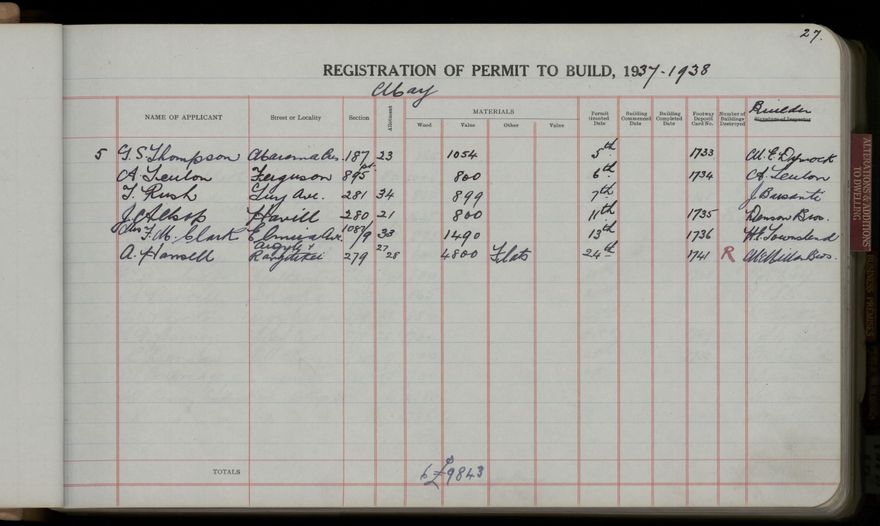 27.
REGISTRATION OF PERMIT TO BUILD, 1937-1938
May
NAME OF APPLICANT Street or Locality Section Allotment MATERIALS Wood Value Other Value Permit Granted Date Building Commenced Date Building Completed Date Footway Deposit Card No. Number of Buildings Destroyed Builder Signature of Inspector
5 G. S. Thompson 187 23 1054 5th 1733 Dymock
A. Fenton Ferguson 895 pt. 800 6th 1734 A. Fenton
F. Rush Guy Ave. 281 34 899 7th J. Bassanti
J. Allsop Havill 280 21 800 11th 1735 Denson Bros.
Mrs F. M. Clark Elmira Ave. 1087/9 33 1490 13th 1736 H. E. Townshend
A. Hansell Argyle & Rangitikei 279 27 28 4800 Flats 24th 1741 R McMillan Bros.
TOTALS 6 £9843
ALTERATIONS & ADDITIONS TO DWELLING